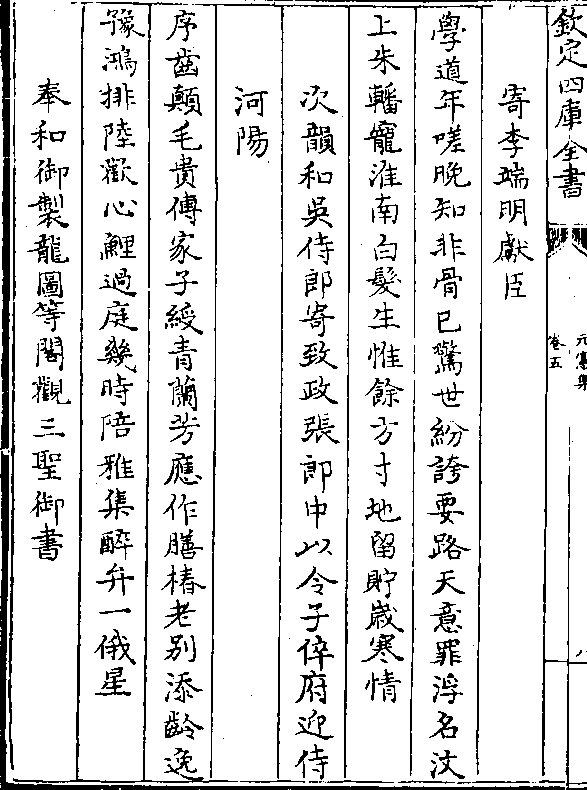 欽定四庫全書
元憲集
卷五
寄李端明獻臣
學道年嗟晚知非骨已驚世紛誇要路天意罪浮名汶
上朱轓寵淮南白髮生惟餘方寸地留貯歲寒情
次韻和吳侍郎寄致政張郎中以令子倅府迎侍
河陽
序齒顛毛貴傳家子綬青蘭芳應作膳椿老別添齡逸
豫鴻排陸歡心鯉過庭幾時陪雅集醉弁一俄星
奉和御製龍圖等閣觀三聖御書